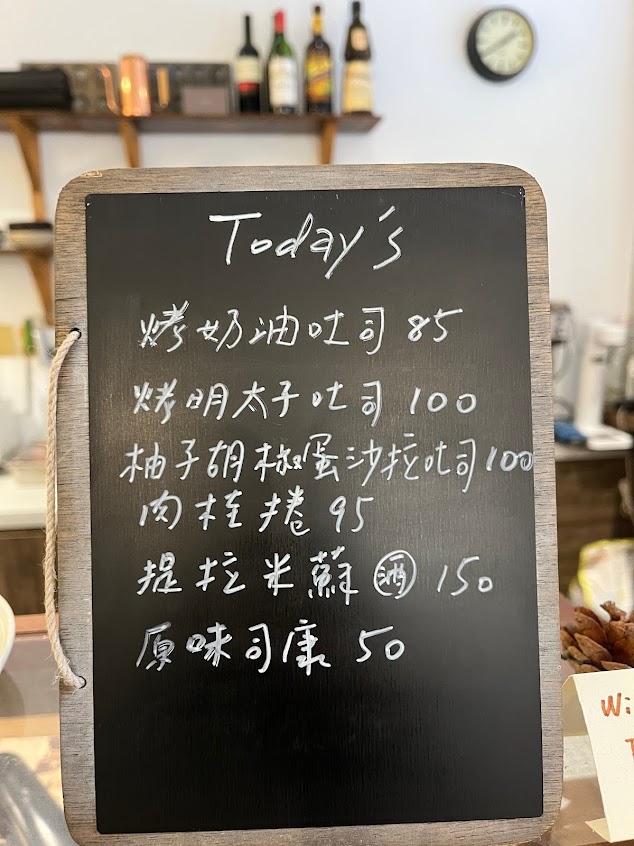 Today's
烤奶油吐司 85
烤明太子吐司 100
柚子胡椒蛋沙拉吐司 100
肉桂捲 95
提拉米蘇 酒 150
原味司康 50
Wi